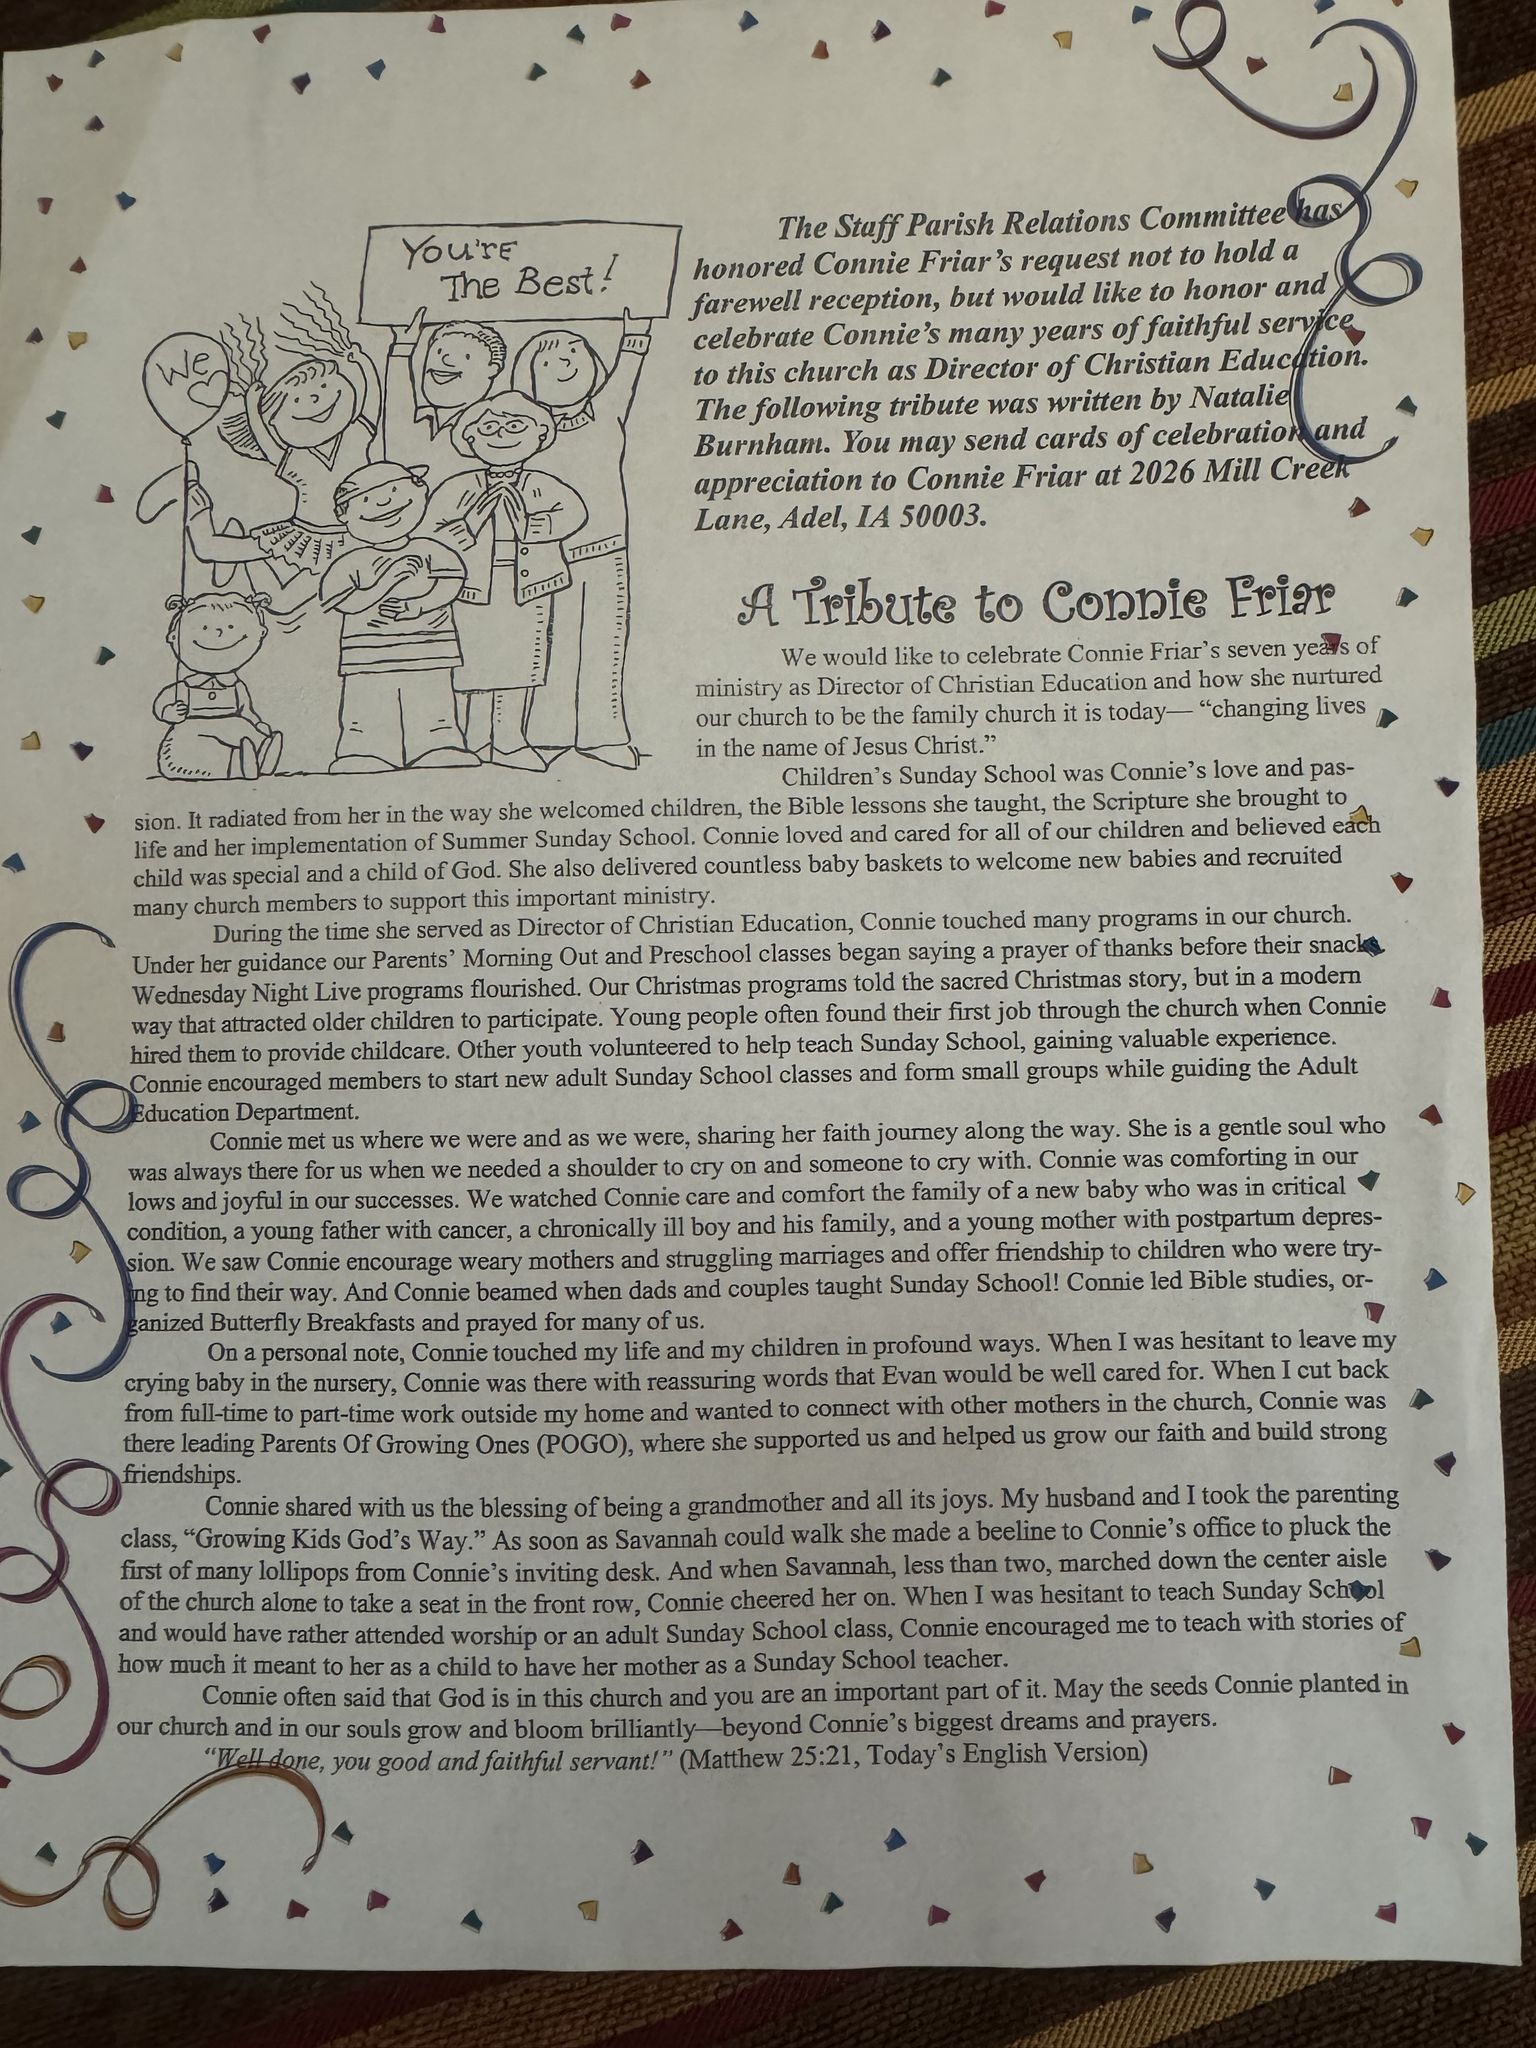 You're
The Best!
We
The Staff Parish Relations Committee has
honored Connie Friar's request not to hold a
farewell reception, but would like to honor and
celebrate Connie's many years of faithful service
to this church as Director of Christian Education.
The following tribute was written by Natalie
Burnham. You may send cards of celebration and
appreciation to Connie Friar at 2026 Mill Creek
Lane, Adel, IA 50003.
A Tribute to Connie Friar
We would like to celebrate Connie Friar's seven years of
ministry as Director of Christian Education and how she nurtured
our church to be the family church it is today— “changing lives
in the name of Jesus Christ.”
Children's Sunday School was Connie's love and pas-
sion. It radiated from her in the way she welcomed children, the Bible lessons she taught, the Scripture she brought to
life and her implementation of Summer Sunday School. Connie loved and cared for all of our children and believed each
child was special and a child of God. She also delivered countless baby baskets to welcome new babies and recruited
many church members to support this important ministry.
During the time she served as Director of Christian Education, Connie touched many programs in our church.
Under her guidance our Parents' Morning Out and Preschool classes began saying a prayer of thanks before their snacks.
Wednesday Night Live programs flourished. Our Christmas programs told the sacred Christmas story, but in a modern
way that attracted older children to participate. Young people often found their first job through the church when Connie
hired them to provide childcare. Other youth volunteered to help teach Sunday School, gaining valuable experience.
Connie encouraged members to start new adult Sunday School classes and form small groups while guiding the Adult
Education Department.
Connie met us where we were and as we were, sharing her faith journey along the way. She is a gentle soul who
was always there for us when we needed a shoulder to cry on and someone to cry with. Connie was comforting in our
lows and joyful in our successes. We watched Connie care and comfort the family of a new baby who was in critical
condition, a young father with cancer, a chronically ill boy and his family, and a young mother with postpartum depres-
sion. We saw Connie encourage weary mothers and struggling marriages and offer friendship to children who were try-
ing to find their way. And Connie beamed when dads and couples taught Sunday School! Connie led Bible studies, or-
ganized Butterfly Breakfasts and prayed for many of us.
On a personal note, Connie touched my life and my children in profound ways. When I was hesitant to leave my
crying baby in the nursery, Connie was there with reassuring words that Evan would be well cared for. When I cut back
from full-time to part-time work outside my home and wanted to connect with other mothers in the church, Connie was
there leading Parents Of Growing Ones (POGO), where she supported us and helped us grow our faith and build strong
friendships.
Connie shared with us the blessing of being a grandmother and all its joys. My husband and I took the parenting
class, “Growing Kids God's Way.” As soon as Savannah could walk she made a beeline to Connie's office to pluck the
first of many lollipops from Connie's inviting desk. And when Savannah, less than two, marched down the center aisle
of the church alone to take a seat in the front row, Connie cheered her on. When I was hesitant to teach Sunday School
and would have rather attended worship or an adult Sunday School class, Connie encouraged me to teach with stories of
how much it meant to her as a child to have her mother as a Sunday School teacher.
Connie often said that God is in this church and you are an important part of it. May the seeds Connie planted in
our church and in our souls grow and bloom brilliantly—beyond Connie's biggest dreams and prayers.
“Well done, you good and faithful servant!” (Matthew 25:21, Today's English Version)